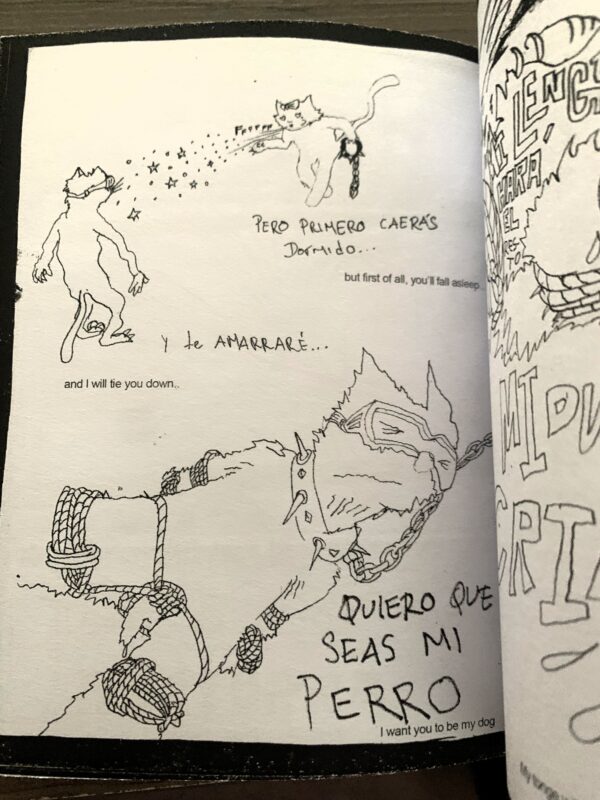 Frrrrr
PERO PRIMERO CAERÁS
Dormido...
but first of all, you'll fall asleep
Y te AMARRARÉ...
and I will tie you down..
QUIERO QUE
SEAS MI
PERRO
I want you to be my dog
LENG
HARA
EL
RESTO
MI
My tongue